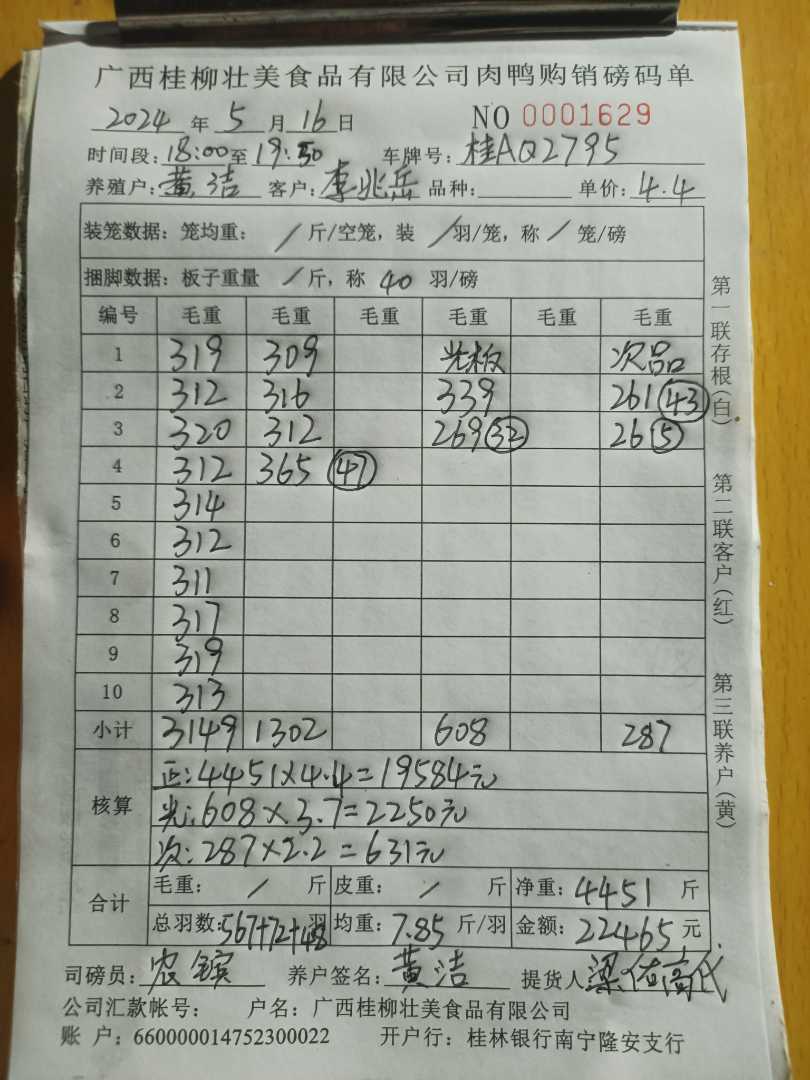 广西桂柳壮美食品有限公司肉鸭购销磅码单
2024 年 5 月 16 日 NO 0001629
时间段：18:00至19:30 车牌号：桂AQ2795
养殖户：黄洁 客户：李兆岳 品种： 单价：4.4
装笼数据：笼均重： / 斤/空笼，装 / 羽/笼，称 / 笼/磅
捆脚数据：板子重量 / 斤，称 40 羽/磅
编号 毛重 毛重 毛重 毛重 毛重 毛重
1 319 309 光板 次品
2 312 316 339 261 43
3 320 312 269 32 26 5
4 312 365 47
5 314
6 312
7 311
8 317
9 319
10 313
小计 3149 1302 608 287
核算 正：4451×4.4=19584元
光：608×3.7=2250元
次：287×2.2=631元
合计 毛重： / 斤 皮重： / 斤 净重：4451 斤
总羽数：567+72+48 羽 均重：7.85 斤/羽 金额：22465 元
司磅员：农镔 养户签名：黄洁 提货人 梁佑高代
公司汇款帐号： 户名：广西桂柳壮美食品有限公司
账 户：660000014752300022 开户行：桂林银行南宁隆安支行
第一联存根（白）
第二联客户（红）
第三联养户（黄）